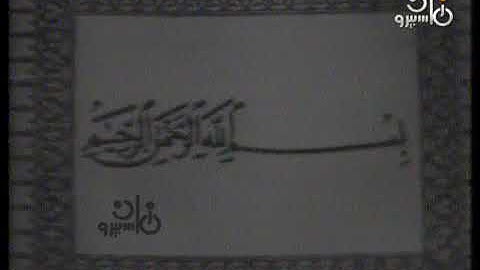 ماسبيرو زمان
بسم الله الرحمن الرحيم
ماسبيرو زمان